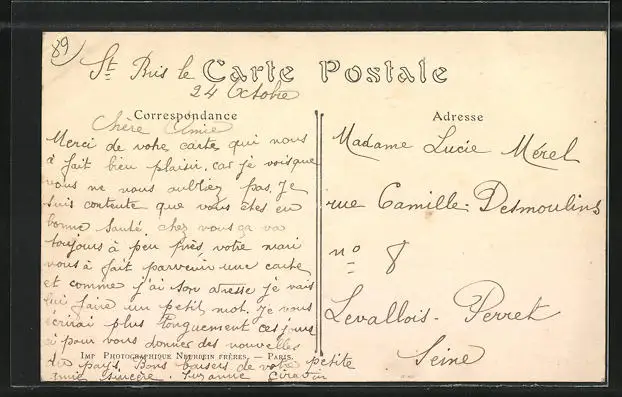 89)
St Bris le
Carte Postale
24 Octobre
Correspondance
Chère Amie
Merci de votre carte qui nous
à fait bien plaisir. car je vois que
vous ne nous oubliez pas. Je
suis contente que vous êtes en
bonne santé. chez nous ça va
toujours à peu près, votre mari
nous à fait parvenir une carte
et comme j'ai son adresse je vais
lui faire un petit mot. Je vous
écrirai plus longuement ces jours
ci pour vous donner des nouvelles
IMP PHOTOGRAPHIQUE NEURDEIN FRÈRES. — PARIS.
du pays. Bons baisers de votre petite
amie sincère. Suzanne
Adresse
Madame Lucie Mérel
rue Camille Desmoulins
n° 8
Levallois-Perret
Seine